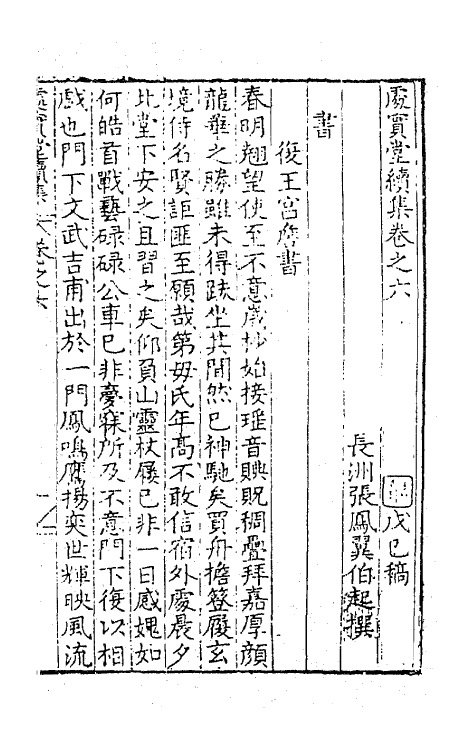 處實堂續集卷之六　戊己稿
長洲張鳳翼伯起撰
書
復王宮詹書
春明翹望使至不意歲杪始接瑤音貺稠疊拜嘉厚顏
龍華之勝雖未得趺坐其間然已神馳矣買舟擔簦履玄
境侍名賢詎匪至願哉第母氏年高不敢信宿外處晨夕
北堂下安之且習之矣仰負山靈杖屨已非一日感媿如
何皓首戰藝碌碌公車已非夢寐所及不意門下復以相
戲也門下文武吉甫出於一門鳳鳴鷹揚奕世輝映風流
處實堂續集　卷之六　一